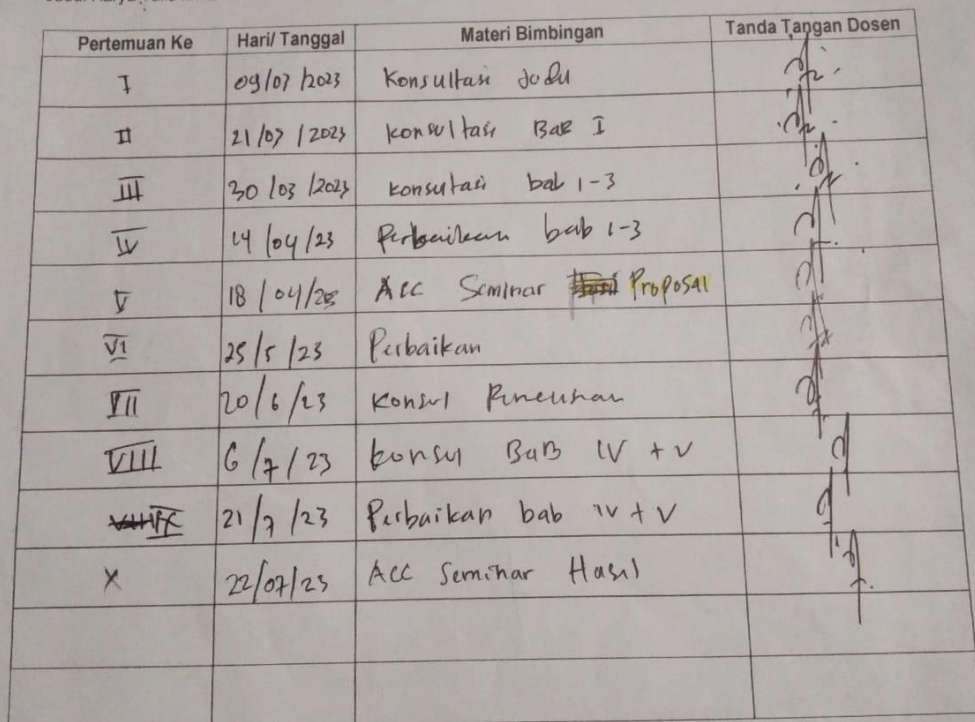 Pertemuan Ke Hari/ Tanggal Materi Bimbingan Tanda Tangan Dosen
I 09/03/2023 Konsultasi Judu
II 21/03/2023 konsultasi BAB I
III 30/03/2023 konsutasi bab 1-3
IV 14/04/23 Perbaikan bab 1-3
V 18/04/23 Acc Seminar Proposal
VI 25/5/23 Perbaikan
VII 20/6/23 Konsul
VIII 6/7/23 konsul BaB IV + V
IX 21/7/23 Perbaikan bab IV + V
X 22/07/23 Acc Seminar Hasil